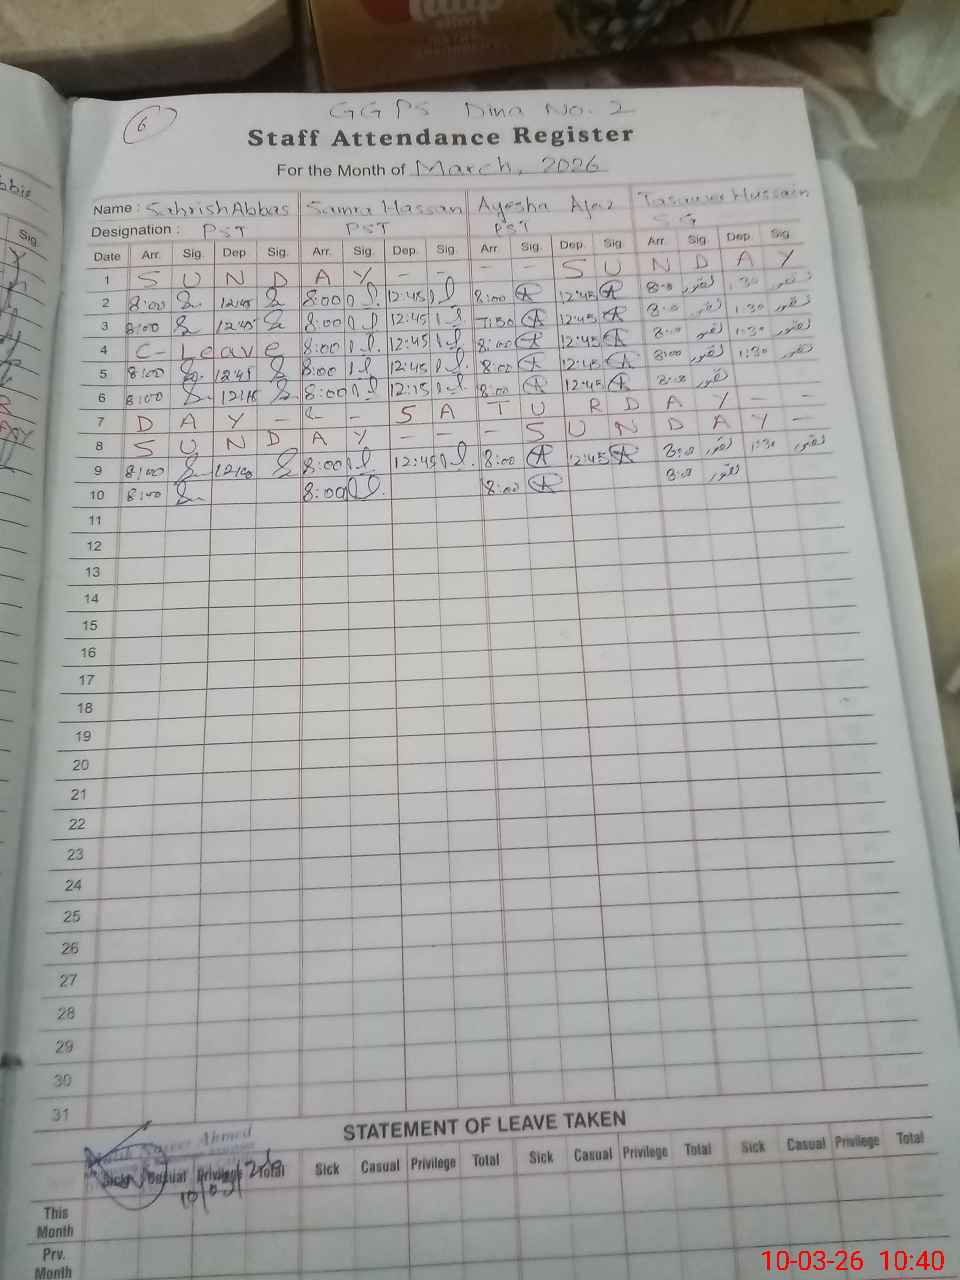 6
GGPS Dina No. 2
Staff Attendance Register
For the Month of March, 2026
Name : Sahrish Abbas Samra Hassan Ayesha Ajaz Tasawer Hussain
Designation : PST PST PST S.G
Date Arr. Sig. Dep Sig. Arr. Sig. Dep. Sig. Arr. Sig. Dep. Sig. Arr. Sig. Dep. Sig.
1 S U N D A Y - - - - S U N D A Y
2 8:00 12:45 8:00 12:45 8:00 12:45 8:00 1:30
3 8:00 12:45 8:00 12:45 7:50 12:45 8:00 1:30
4 C- Leave 8:00 12:45 8:00 12:45 8:00 1:30
5 8:00 12:45 8:00 12:45 8:00 12:45 8:00 1:30
6 8:00 8:00 12:15 8:00 12:45 8:00
7 D A Y - - - S A T U R D A Y - -
8 S U N D A Y - - - S U N D A Y -
9 8:00 8:00 12:45 8:00 12:45 8:00 1:30
10 8:00 8:00 8:00 8:00
11
12
13
14
15
16
17
18
19
20
21
22
23
24
25
26
27
28
29
30
31
STATEMENT OF LEAVE TAKEN
Ahmed
Sick Casual Privilege Total Sick Casual Privilege Total Sick Casual Privilege Total Sick Casual Privilege Total
This Month
Prv. Month
10-03-26 10:40